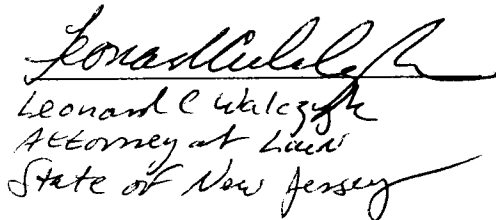 Leonard C Walczyk
Leonard C Walczyk
Attorney at Law
State of New Jersey